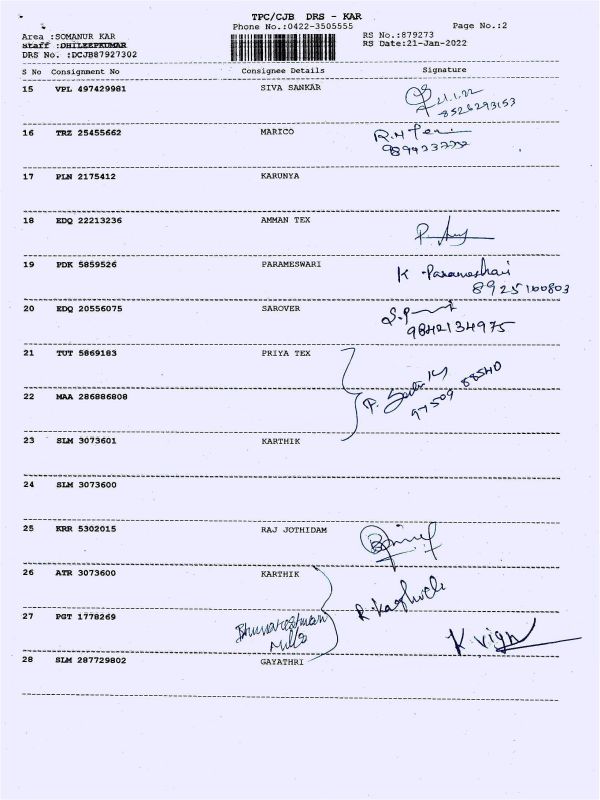 TPC/CJB DRS - KAR
Phone No.:0422-3505555
Page No.:2
Area :SOMANUR KAR
RS No.:879273
staff :DHILEEPKUMAR
RS Date:21-Jan-2022
DRS No. :DCJB87927302
S No Consignment No Consignee Details Signature
15 VPL 497429981 SIVA SANKAR
21.1.22
8526293153
16 TRZ 25455662 MARICO
17 PLN 2175412 KARUNYA
18 EDQ 22213236 AMMAN TEX
19 PDK 5859526 PARAMESWARI
K. Parameshwari
8925100803
20 EDQ 20556075 SAROVER
9842134975
21 TUT 5869183 PRIYA TEX
22 MAA 286886808
97509 88540
23 SLM 3073601 KARTHIK
24 SLM 3073600
25 KRR 5302015 RAJ JOTHIDAM
26 ATR 3073600 KARTHIK
27 PGT 1778269
Mills
K. Vign
28 SLM 287729802 GAYATHRI